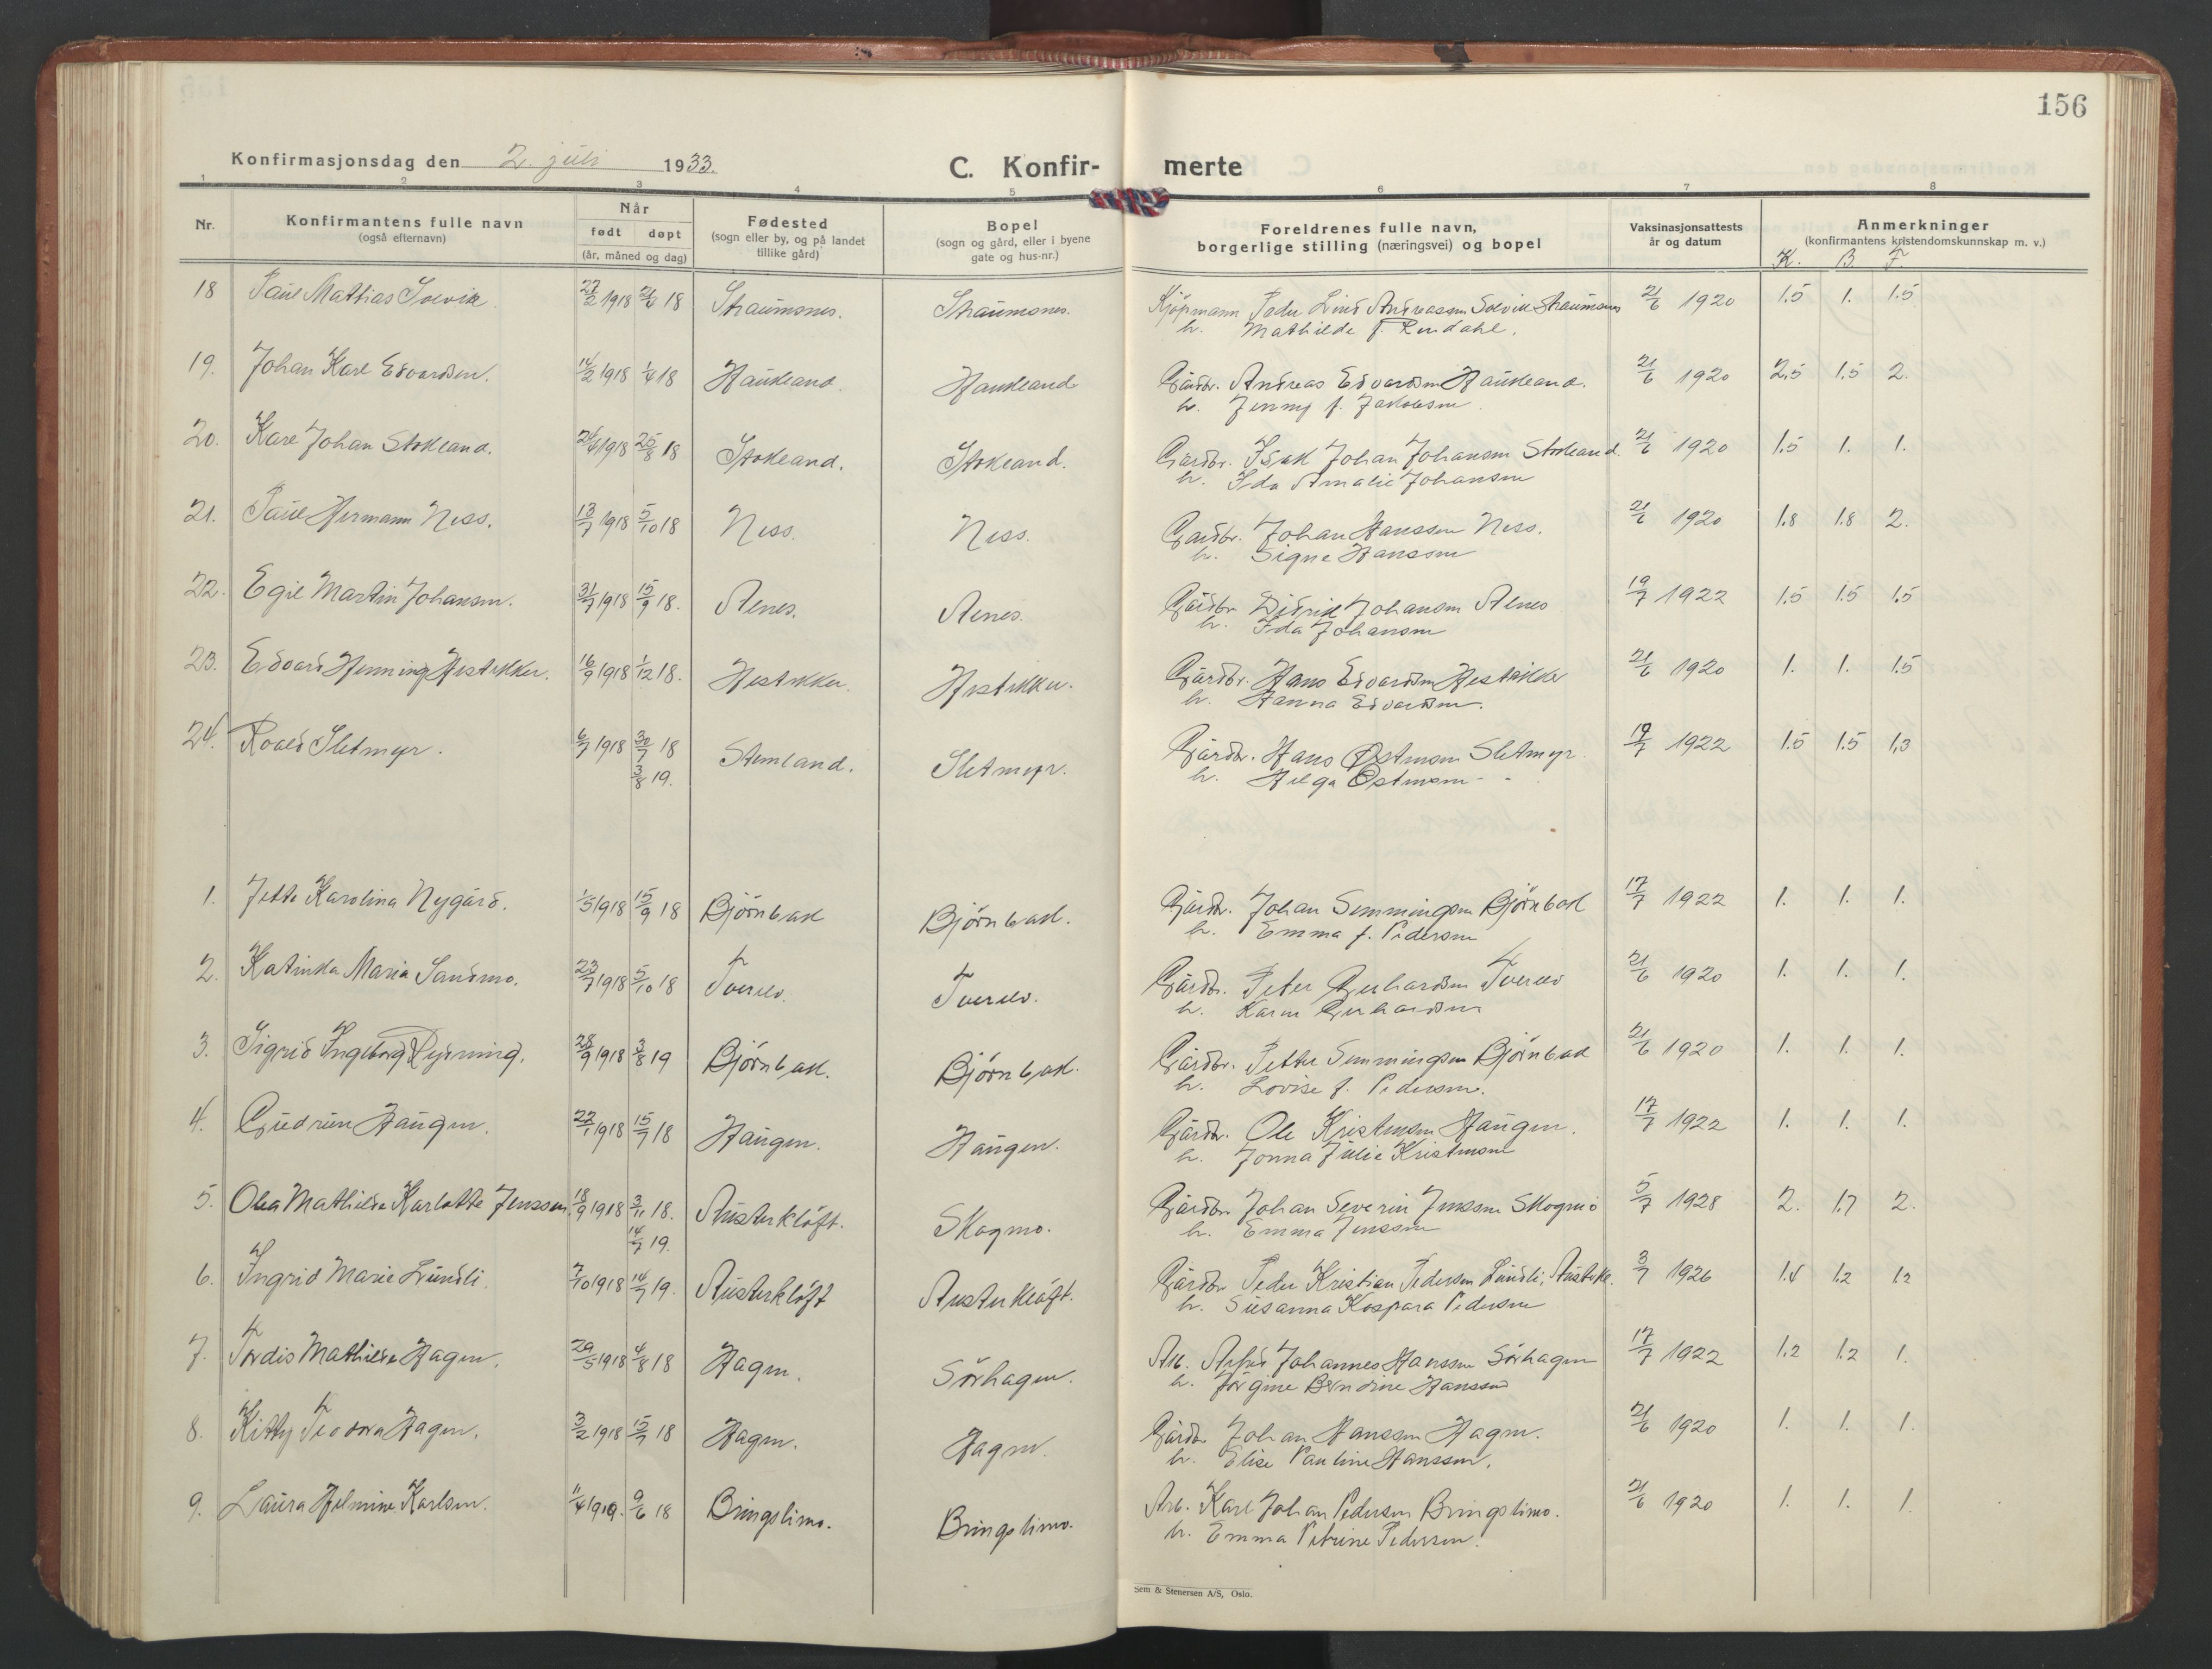 156
Konfirmasjonsdag den 2. juli 1933.
C. Konfir- merte
1 2 3 4 5 6 7 8
Nr.
Konfirmantens fulle navn
(også efternavn)
Når
født døpt
(år, måned og dag)
Fødested
(sogn eller by, og på landet
tillike gård)
Bopel
(sogn og gård, eller i byene
gate og hus-nr.)
Foreldrenes fulle navn,
borgerlige stilling (næringsvei) og bopel
Vaksinasjonsattests
år og datum
Anmerkninger
(konfirmantens kristendomskunnskap m. v.)
K. B. F.
18 Paul Mathias Solvik. 27/2 1918 21/4 18 Straumsnes. Straumsnes. Kjöpmann Peder Lind Andreassen Solvik Straumsnes 21/6 1920 1.5 1. 1.5
h. Mathilde f. Rendahl.
19. Johan Karl Edvardsen. 14/2 1918 1/4 18 Haukland. Haukland Gårdbr. Andreas Edvardsen Haukland. 21/6 1920 2.5 1.5 2.
h. Jenny f. Jakobsen.
20. Kare Johan Stokland. 24/6 1918 25/8 18 Stokland. Stokland. Gårdbr. Isak Johan Johansen Stokland. 21/6 1920 1.5 1. 1.
h. Ida Amalie Johansen
21. Paul Hermann Ness. 13/7 1918 5/10 18 Ness. Ness. Gardbr. Johan Hanssen Ness. 21/6 1920 1.8 1.8 2.
h. Signe Hanssen
22. Egil Martin Johansen. 31/7 1918 15/9 18. Alnes. Alnes. Gårdbr. Didrik Johansen Alnes 19/7 1922 1.5 1.5 1.5
h. Ida Johansen
23. Edvard Henning Hestekker. 16/9 1918 1/12 18. Hestekker. Hestekker. Gårdbr. Hans Edvardsen Hestekker 21/6 1920 1. 1. 1.5
h. Hanna Edvardsen.
24. Roald Sletmyr. 6/7 1918 30/7 18 Stemland. Sletmyr. Gårdbr. Hans Østensen Sletmyr. 19/7 1922 1.5 1.5 1.3
3/8 19. h. Helga Østensen - -
1. Jette Karolina Nygård. 1/5 1918 15/9 18 Björnbak Björnbak. Gårdbr. Johan Semmingsen Björnbak 17/7 1922 1. 1. 1.
h. Emma f. Pedersen
2. Katinka Maria Sandmo. 23/7 1918 5/10 18 Tverelv. Tverelv. Gårdbr. Peter Gerhardsen Tverelv 21/6 1920 1. 1. 1.
h. Karen Gerhardsen
3. Sigrid Ingeborg Rydning. 28/9 1918 3/8 19 Björnbak. Björnbak. Gårdbr. Petter Semmingsen Björnbak 21/6 1920 1. 1. 1.
h. Lovise f. Pedersen.
4. Gudrun Haugen. 22/1 1918 15/7 18 Haugen. Haugen. Gårdbr. Ole Kristensen Haugen. 17/7 1922 1. 1. 1.
h. Jonna Julie Kristensen
5. Olea Mathilde Karlotte Jenssen. 18/9 1918 3/11 18. Austerklöft. Skogmo. Gårdbr. Johan Severin Jenssen Skogmo 5/7 1928 2. 1.7 2.
14/7 19. h. Emma Jenssen
6. Ingrid Marie Lundli. 7/10 1918 14/7 19. Austerklöft Austerklöft. Gårdbr. Peder Kristian Pedersen Lundli, Austerkl. 3/7 1926 1.5 1.2 1.2
h. Susanna Kaspara Pedersen
7. Tordis Mathilde Hagen. 29/5 1918 4/8 18 Hagen. Sörhagen. Arb. Alfred Johannes Hanssen Sörhagen 17/7 1922 1.2 1.2 1.
h. Jörgine Berndine Hanssen
8. Kitty Teodora Hagen. 3/2 1918 15/7 18 Hagen. Hagen. Gårdbr. Johan Hanssen Hagen. 21/6 1920 1. 1. 1.
h. Elise Pauline Hanssen.
9. Laura Helmine Karlsen. 11/4 1919. 9/6 18 Bringslimo. Bringslimo. Arb. Karl Johan Pedersen Bringslimo. 21/6 1920 1. 1. 1.
h. Emma Petrine Pedersen.
Sem & Stenersen A/S, Oslo.